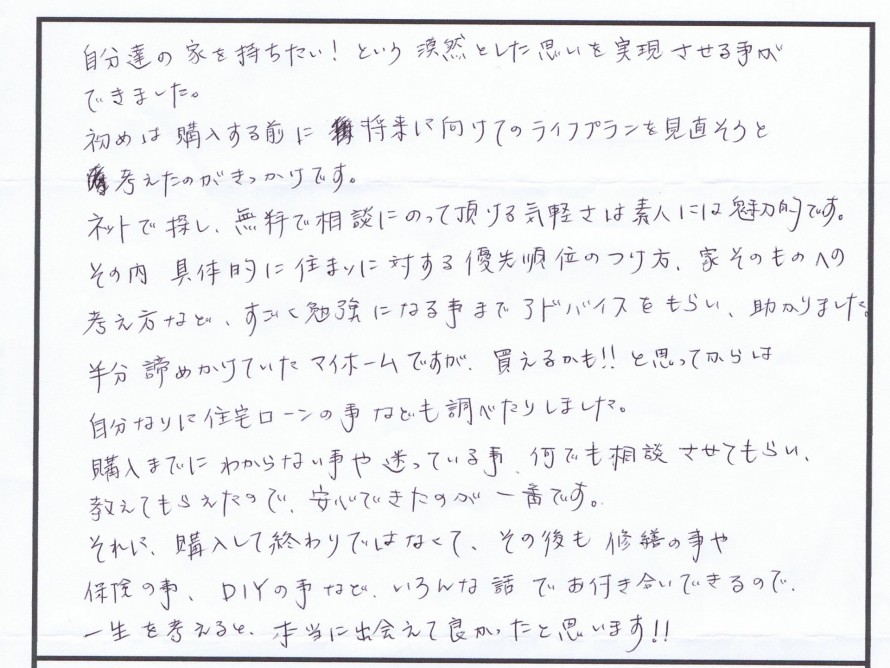 自分達の家を持ちたい！という漠然とした思いを実現させる事が
できました。
初めは購入する前に将来に向けてのライフプランを見直そうと
考えたのがきっかけです。
ネットで探し、無料で相談にのって頂ける気軽さは素人には魅力的です。
その内 具体的に住まいに対する優先順位のつけ方、家そのものへの
考え方など、すごく勉強になる事までアドバイスをもらい、助かりました。
半分諦めかけていたマイホームですが、買えるかも!!と思ってからは
自分なりに住宅ローンの事なども調べたりしました。
購入までにわからない事や迷っている事、何でも相談させてもらい、
教えてもらえたので、安心できたのが一番です。
それに、購入して終わりではなくて、その後も修繕の事や
保険の事、DIYの事など、いろんな話でお付き合いできるので、
一生を考えると、本当に出会えて良かったと思います!!